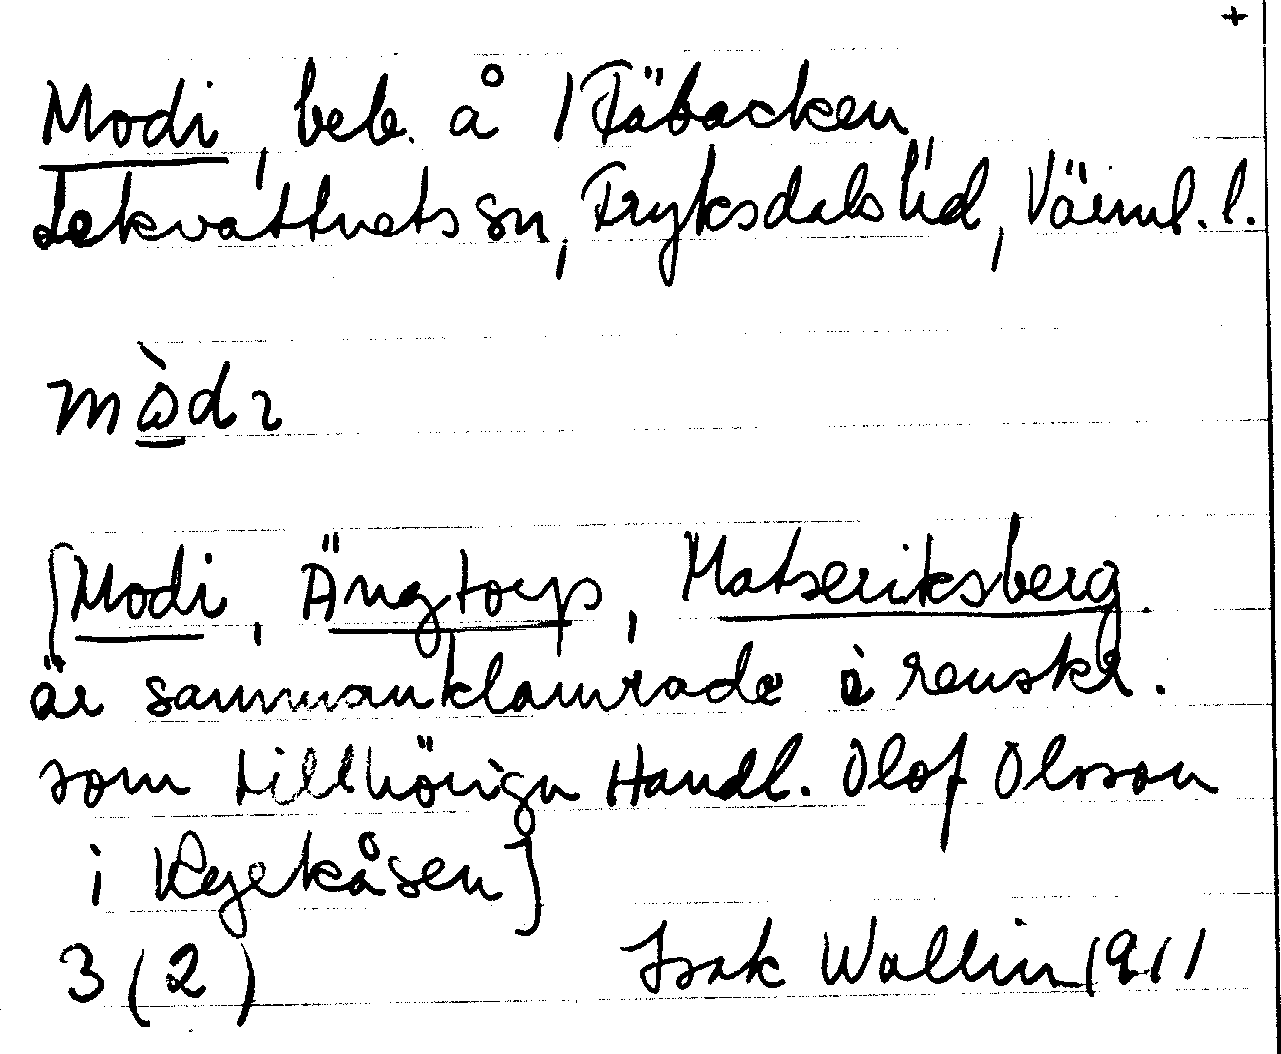 +
Modi, beb. å 1 Fäbacken,
Lekvattnets sn, Fryksdals hd, Värml. l.
mòdɩ
[Modi, Ängtorp, Matseriksberg
är sammanklamrade i renskr.
som tillhöriga Handl. Olof Olsson
i Kyekåsen]
3 (2) Isak Wallin 1911